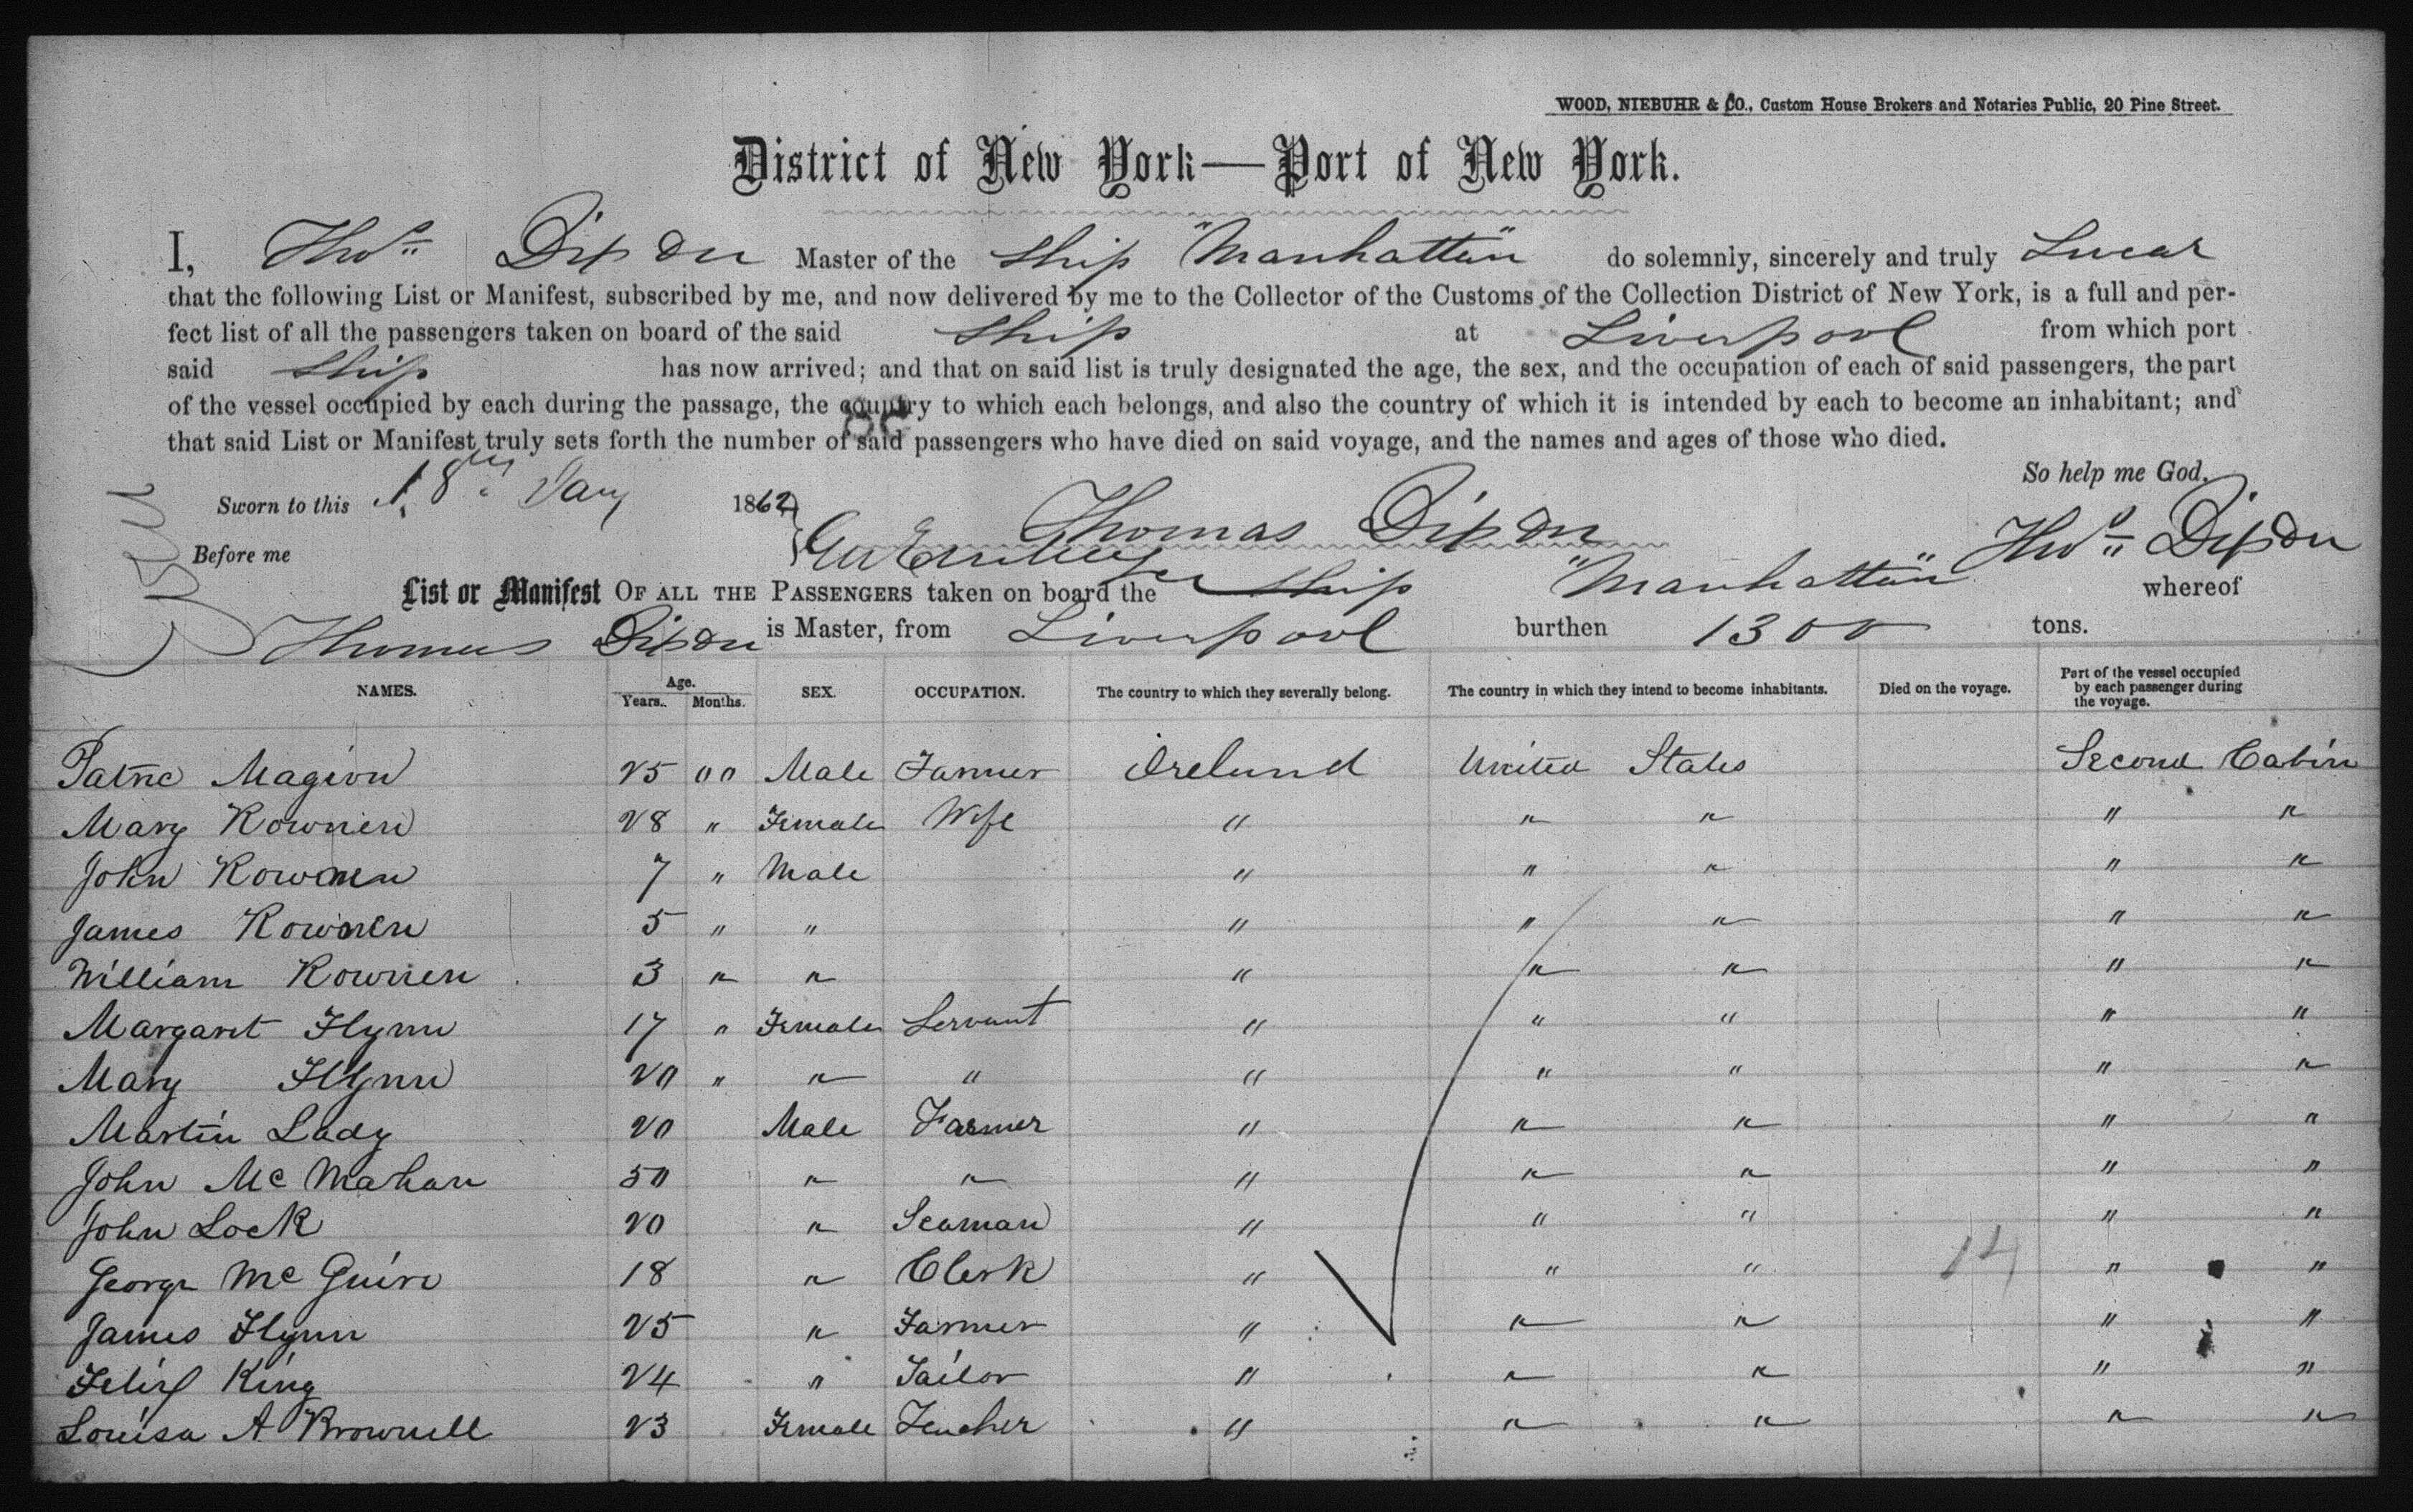 WOOD, NIEBUHR & CO., Custom House Brokers and Notaries Public, 20 Pine Street.
District of New York—Port of New York.
I, Thos Dixon Master of the Ship "Manhattan" do solemnly, sincerely and truly Swear
that the following List or Manifest, subscribed by me, and now delivered by me to the Collector of the Customs of the Collection District of New York, is a full and per-
fect list of all the passengers taken on board of the said Ship at Liverpool from which port
said Ship has now arrived; and that on said list is truly designated the age, the sex, and the occupation of each of said passengers, the part
of the vessel occupied by each during the passage, the country to which each belongs, and also the country of which it is intended by each to become an inhabitant; and
that said List or Manifest truly sets forth the number of said passengers who have died on said voyage, and the names and ages of those who died.
So help me God.
Sworn to this 18th Jany 1862 Thomas Dixon Thos Dixon
Before me
List or Manifest OF ALL THE PASSENGERS taken on board the Ship "Manhattan" whereof
Thomas Dixon is Master, from Liverpool burthen 1300 tons.
NAMES. Age. Years. Months. SEX. OCCUPATION. The country to which they severally belong. The country in which they intend to become inhabitants. Died on the voyage. Part of the vessel occupied by each passenger during the voyage.
Patric Magion 25 00 Male Farmer Ireland United States Second Cabin
Mary Rownen 28 " Female Wife " " " " "
John Rownen 7 " Male " " " " "
James Rownen 5 " " " " " " "
William Rownen 3 " " " " " " "
Margaret Flynn 17 " Female Servant " " " " "
Mary Flynn 20 " " " " " " " "
Martin Lady 20 Male Farmer " " " " "
John McMahan 50 " " " " " " "
John Lock 20 " Seaman " " " " "
George McGuire 18 " Clerk " " " 14 " "
James Flynn 25 " Farmer " " " " "
Felix King 24 " Tailor " " " " "
Louisa A Brownell 23 Female Teacher " " " " "